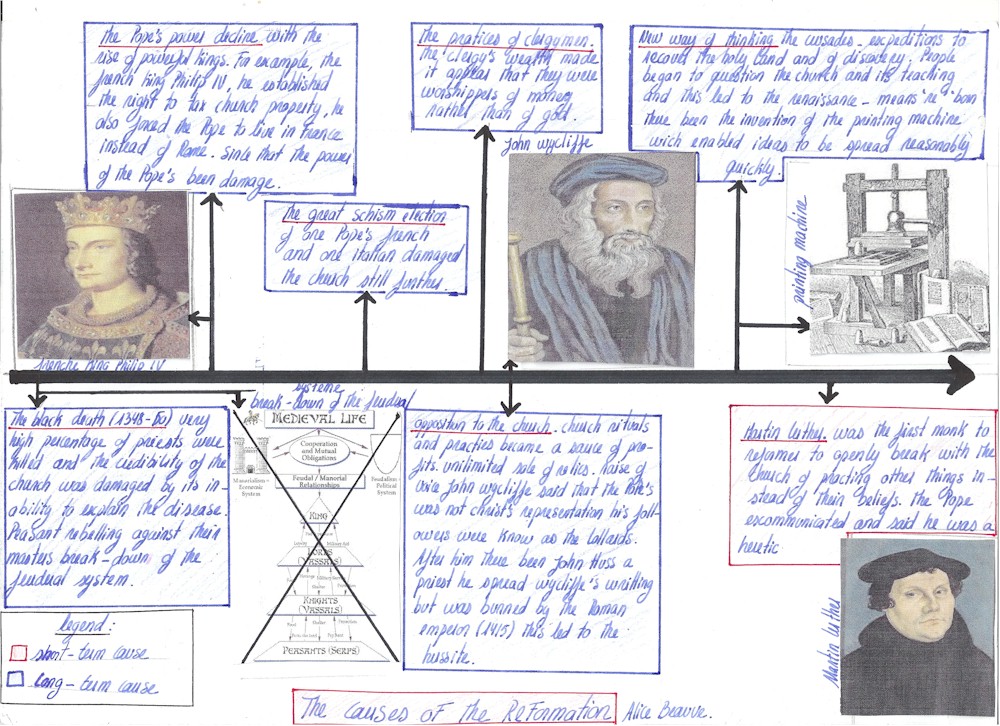 the Pope's power decline with the
rise of powerful kings. For example, the
french king Philip IV, he established
the right to tax church property, he
also forced the Pope to live in France
instead of Rome. Since that the power
of the Pope's been damage.
the great schism election
of one Pope's french
and one italian damaged
the church still further.
the pratices of clergymen.
the clergy's wealth made
it appear that they were
worshippers of money
rather than of god.
John wycliffe
New way of thinking the crusades - expeditions to
recover the holy land and of discovery; People
began to question the church and its teaching
and this led to the renaissance - means 're' 'born
there been the invention of the printing machine
wich enabled ideas to be spread reasonably
quickly.
printing machine
franche King Philip IV
The black death (1348-50) very
high percentage of priests were
killed and the credibility of the
church was damaged by its in-
ability to explain the disease.
Peasant rebelling against their
masters break-down of the
feudual system.
systeme
break-down of the feudual
MEDIEVAL LIFE
Cooperation
and Mutual
Obligations
Manorialism -
Economic
System
Feudalism -
Political
System
Feudal / Manorial
Relationships
KING
Loyalty
Military Aid
LORDS
(VASSALS)
Homage
Military Service
Shelter
Protection
KNIGHTS
(VASSALS)
Food
Shelter
Protection
Farm the land
Pay Rent
PEASANTS (SERFS)
opposition to the church. church rituals
and practies became a sauce of pro-
fits. unilimited sale of relics. Raise of
voice John wycliffe said that the Pope's
was not christ's representation his foll-
owers were know as the lollards.
After him there been John Huss a
priest he spread wycliffe's writting
but was burned by the Roman
emperor (1415) this led to the
hussite.
Martin luther. was the first monk to
reformer to openly break with the
Church of practing other things in-
stead of their beliefs. the Pope
escommunicated and said he was a
heretic
Martin luther
legend:
short-term cause
long-term cause
The causes of the Reformation Alice Beauve.